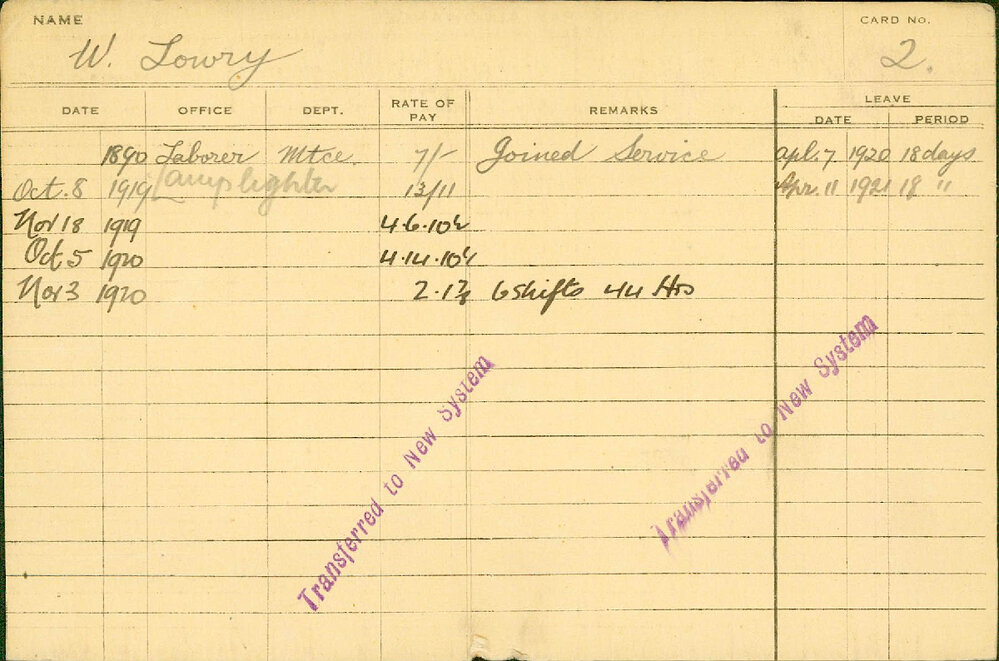 NAME CARD No.
W. Lowry 2.
DATE OFFICE DEPT. RATE OF PAY REMARKS LEAVE
DATE PERIOD
1890 Laborer Mtce 7/- Joined Service Apl. 7 1920 18 days
Oct. 8 1919 Lamplighter 13/11 Apr. 11 1921 18 "
Nov 18 1919 4.6.10½
Oct 5 1920 4.14.10½
Nov 3 1920 6 shifts 44 Hrs
Transferred to New System
Transferred to New System